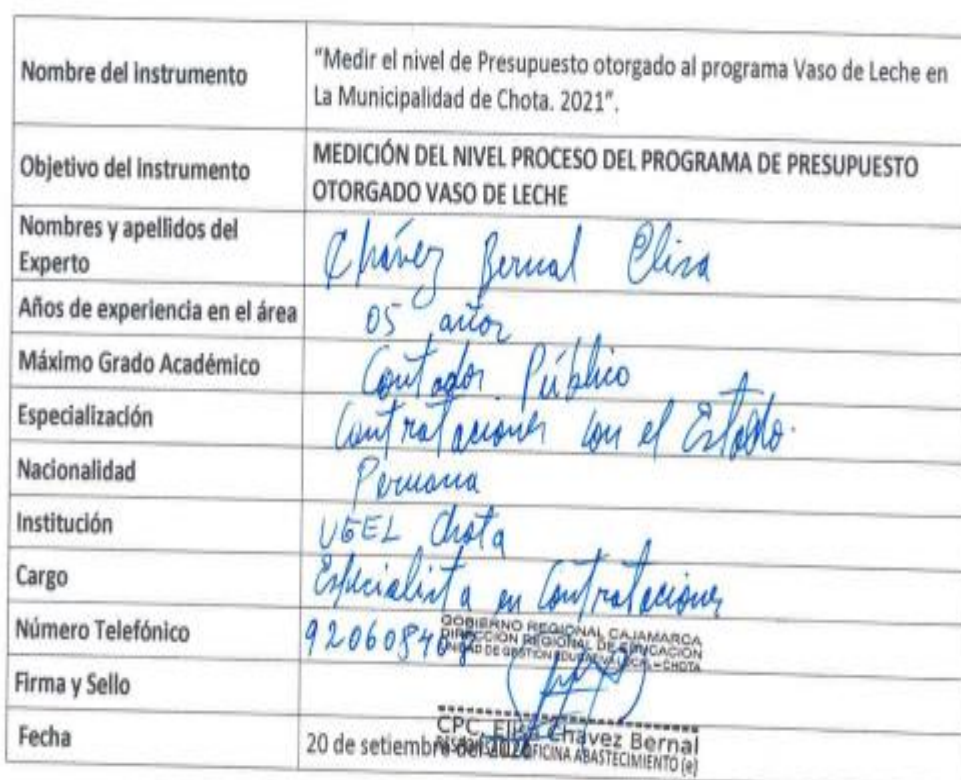 Nombre del Instrumento
"Medir el nivel de Presupuesto otorgado al programa Vaso de Leche en
La Municipalidad de Chota. 2021".
Objetivo del Instrumento
MEDICIÓN DEL NIVEL PROCESO DEL PROGRAMA DE PRESUPUESTO
OTORGADO VASO DE LECHE
Nombres y apellidos del
Experto
Chávez Bernal Elisa
Años de experiencia en el área
05 años
Máximo Grado Académico
Contador Público
Especialización
Contrataciones con el Estado.
Nacionalidad
Peruana
Institución
UGEL Chota
Cargo
Especialista en Contrataciones
Número Telefónico
920608408
GOBIERNO REGIONAL CAJAMARCA
DIRECCION REGIONAL DE EDUCACION
UNIDAD DE GESTION EDUCATIVA LOCAL - CHOTA
Firma y Sello
CPC. Elisa Chavez Bernal
OFICINA ABASTECIMIENTO (e)
Fecha
20 de setiembre del